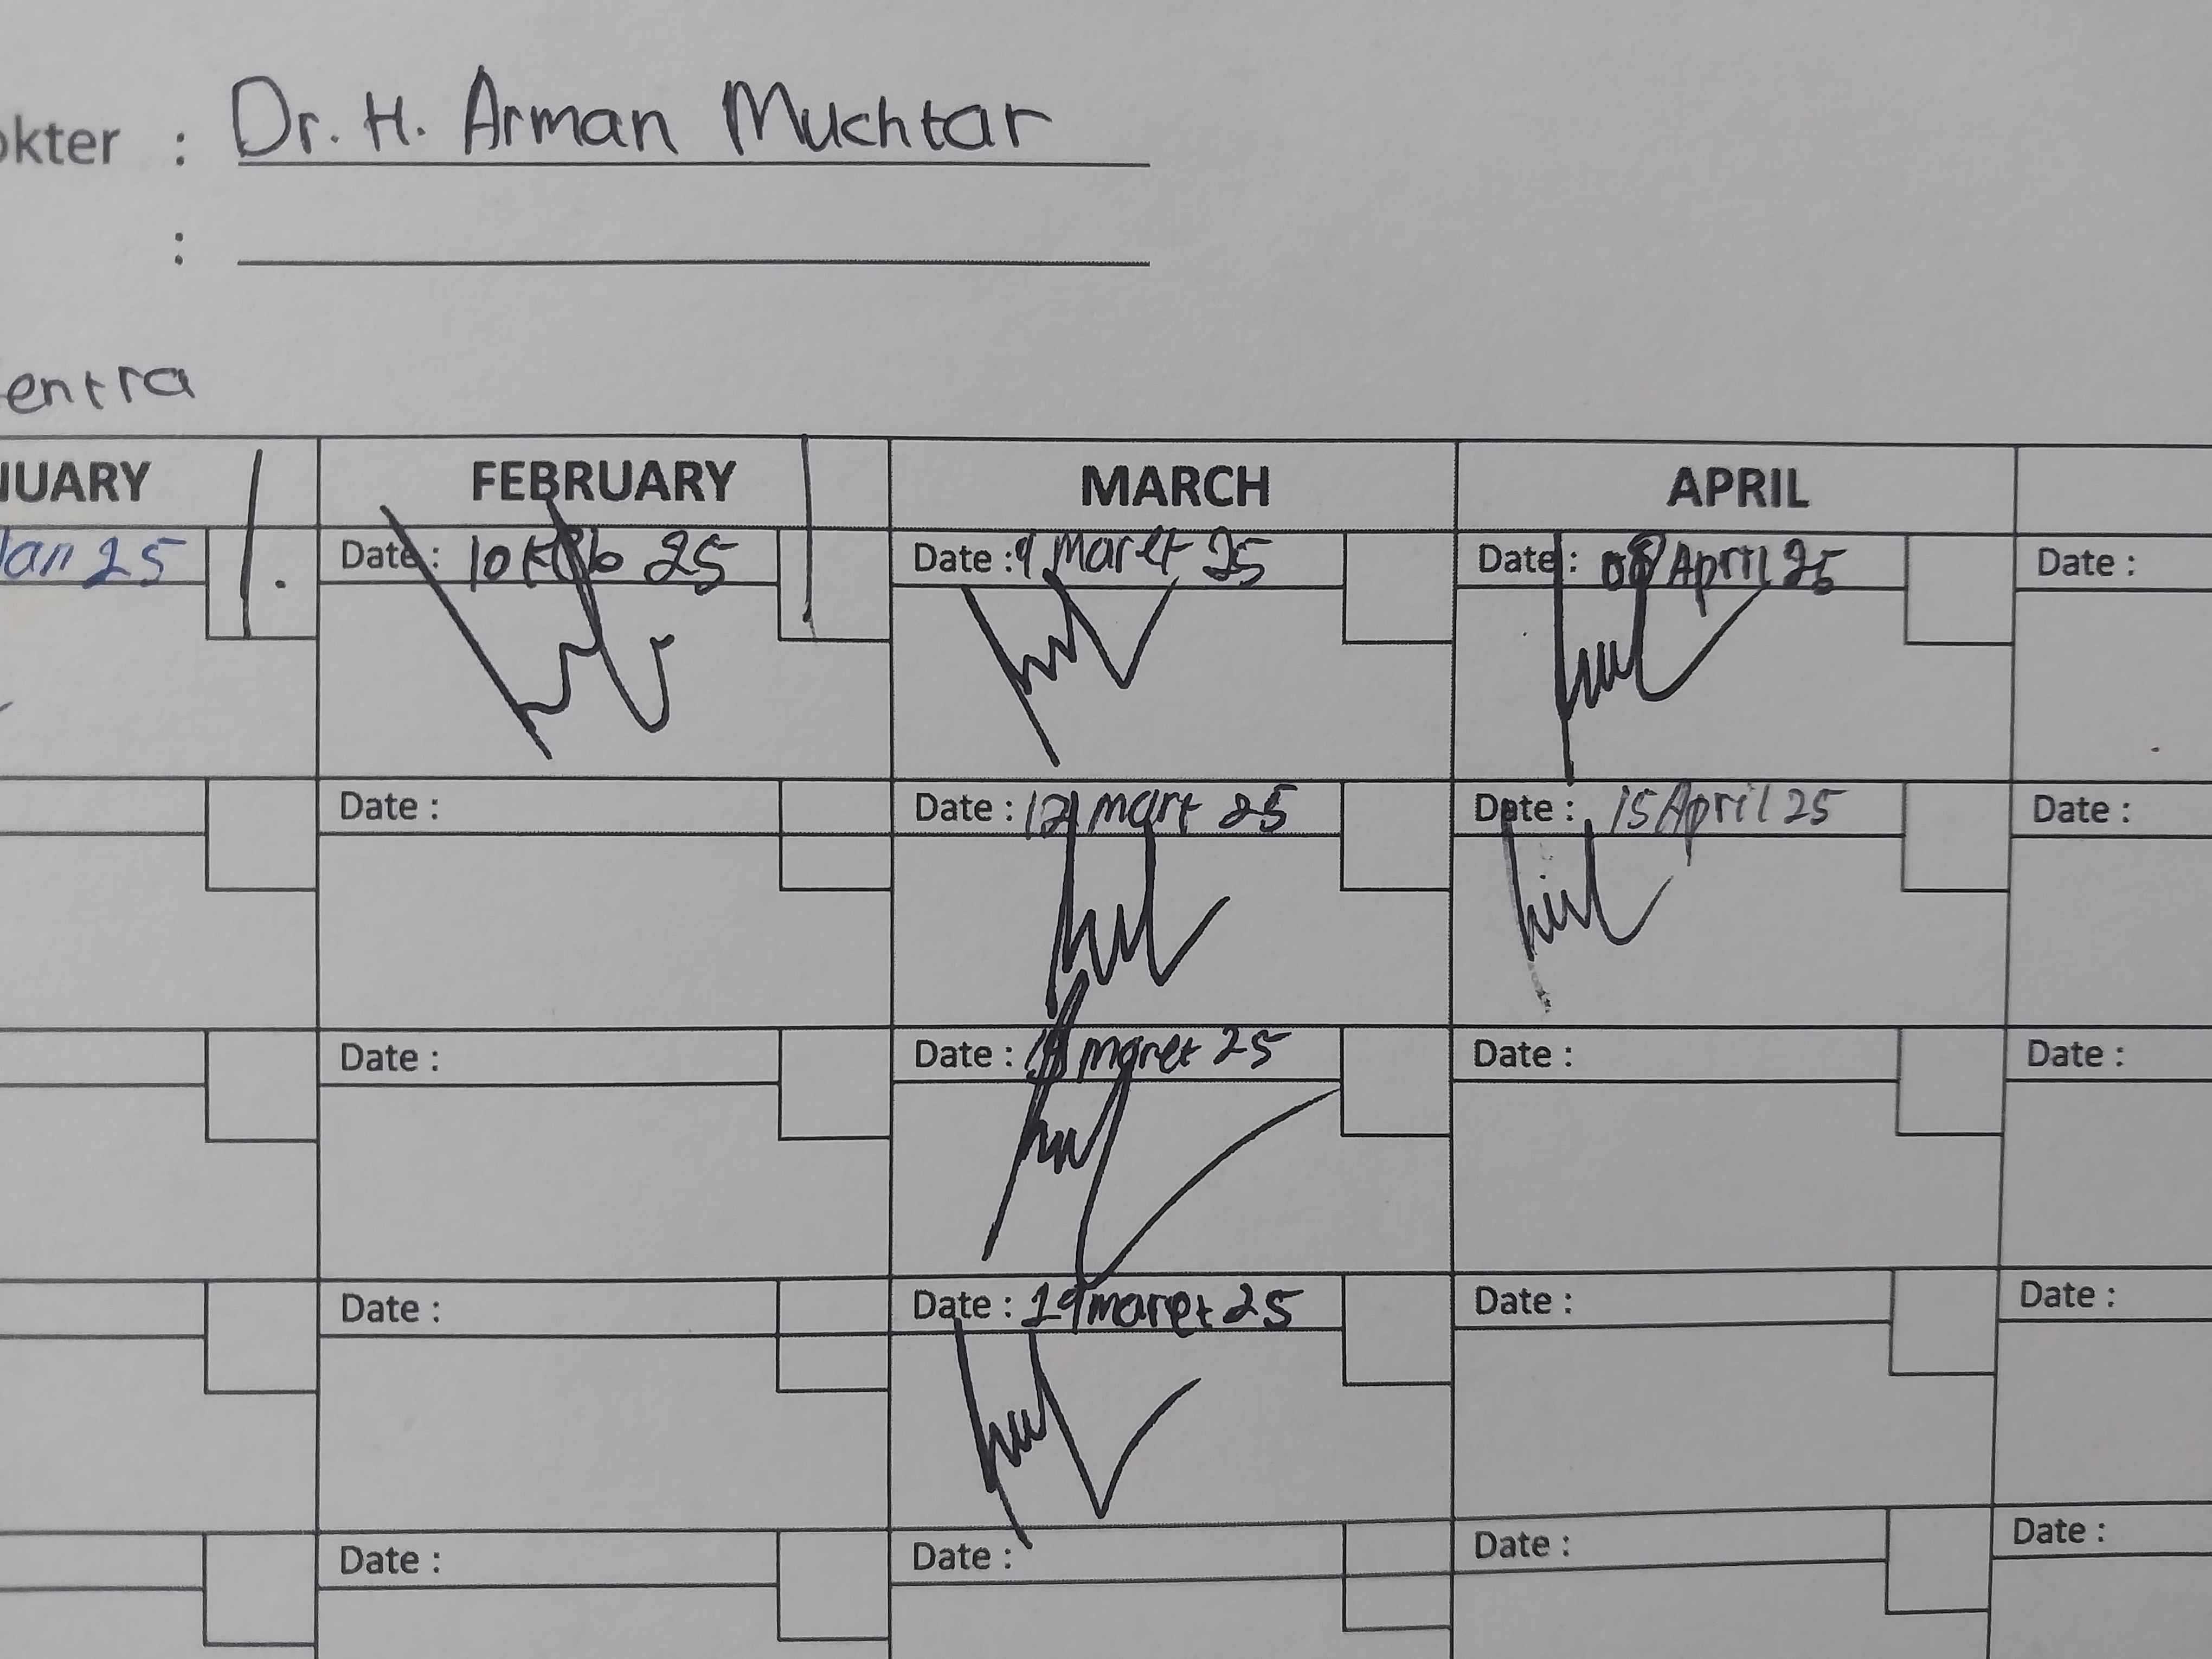 okter : Dr. H. Arman Muchtar
:
entra
NUARY FEBRUARY MARCH APRIL
Jan 25 1. Date : 10 Feb 25 Date : 9 Maret 25 Date : 08 April 25 Date :
Date : Date : 12 mart 25 Date : 15 April 25 Date :
Date : Date : maret 25 Date : Date :
Date : Date : 19 maret 25 Date : Date :
Date : Date : Date : Date :